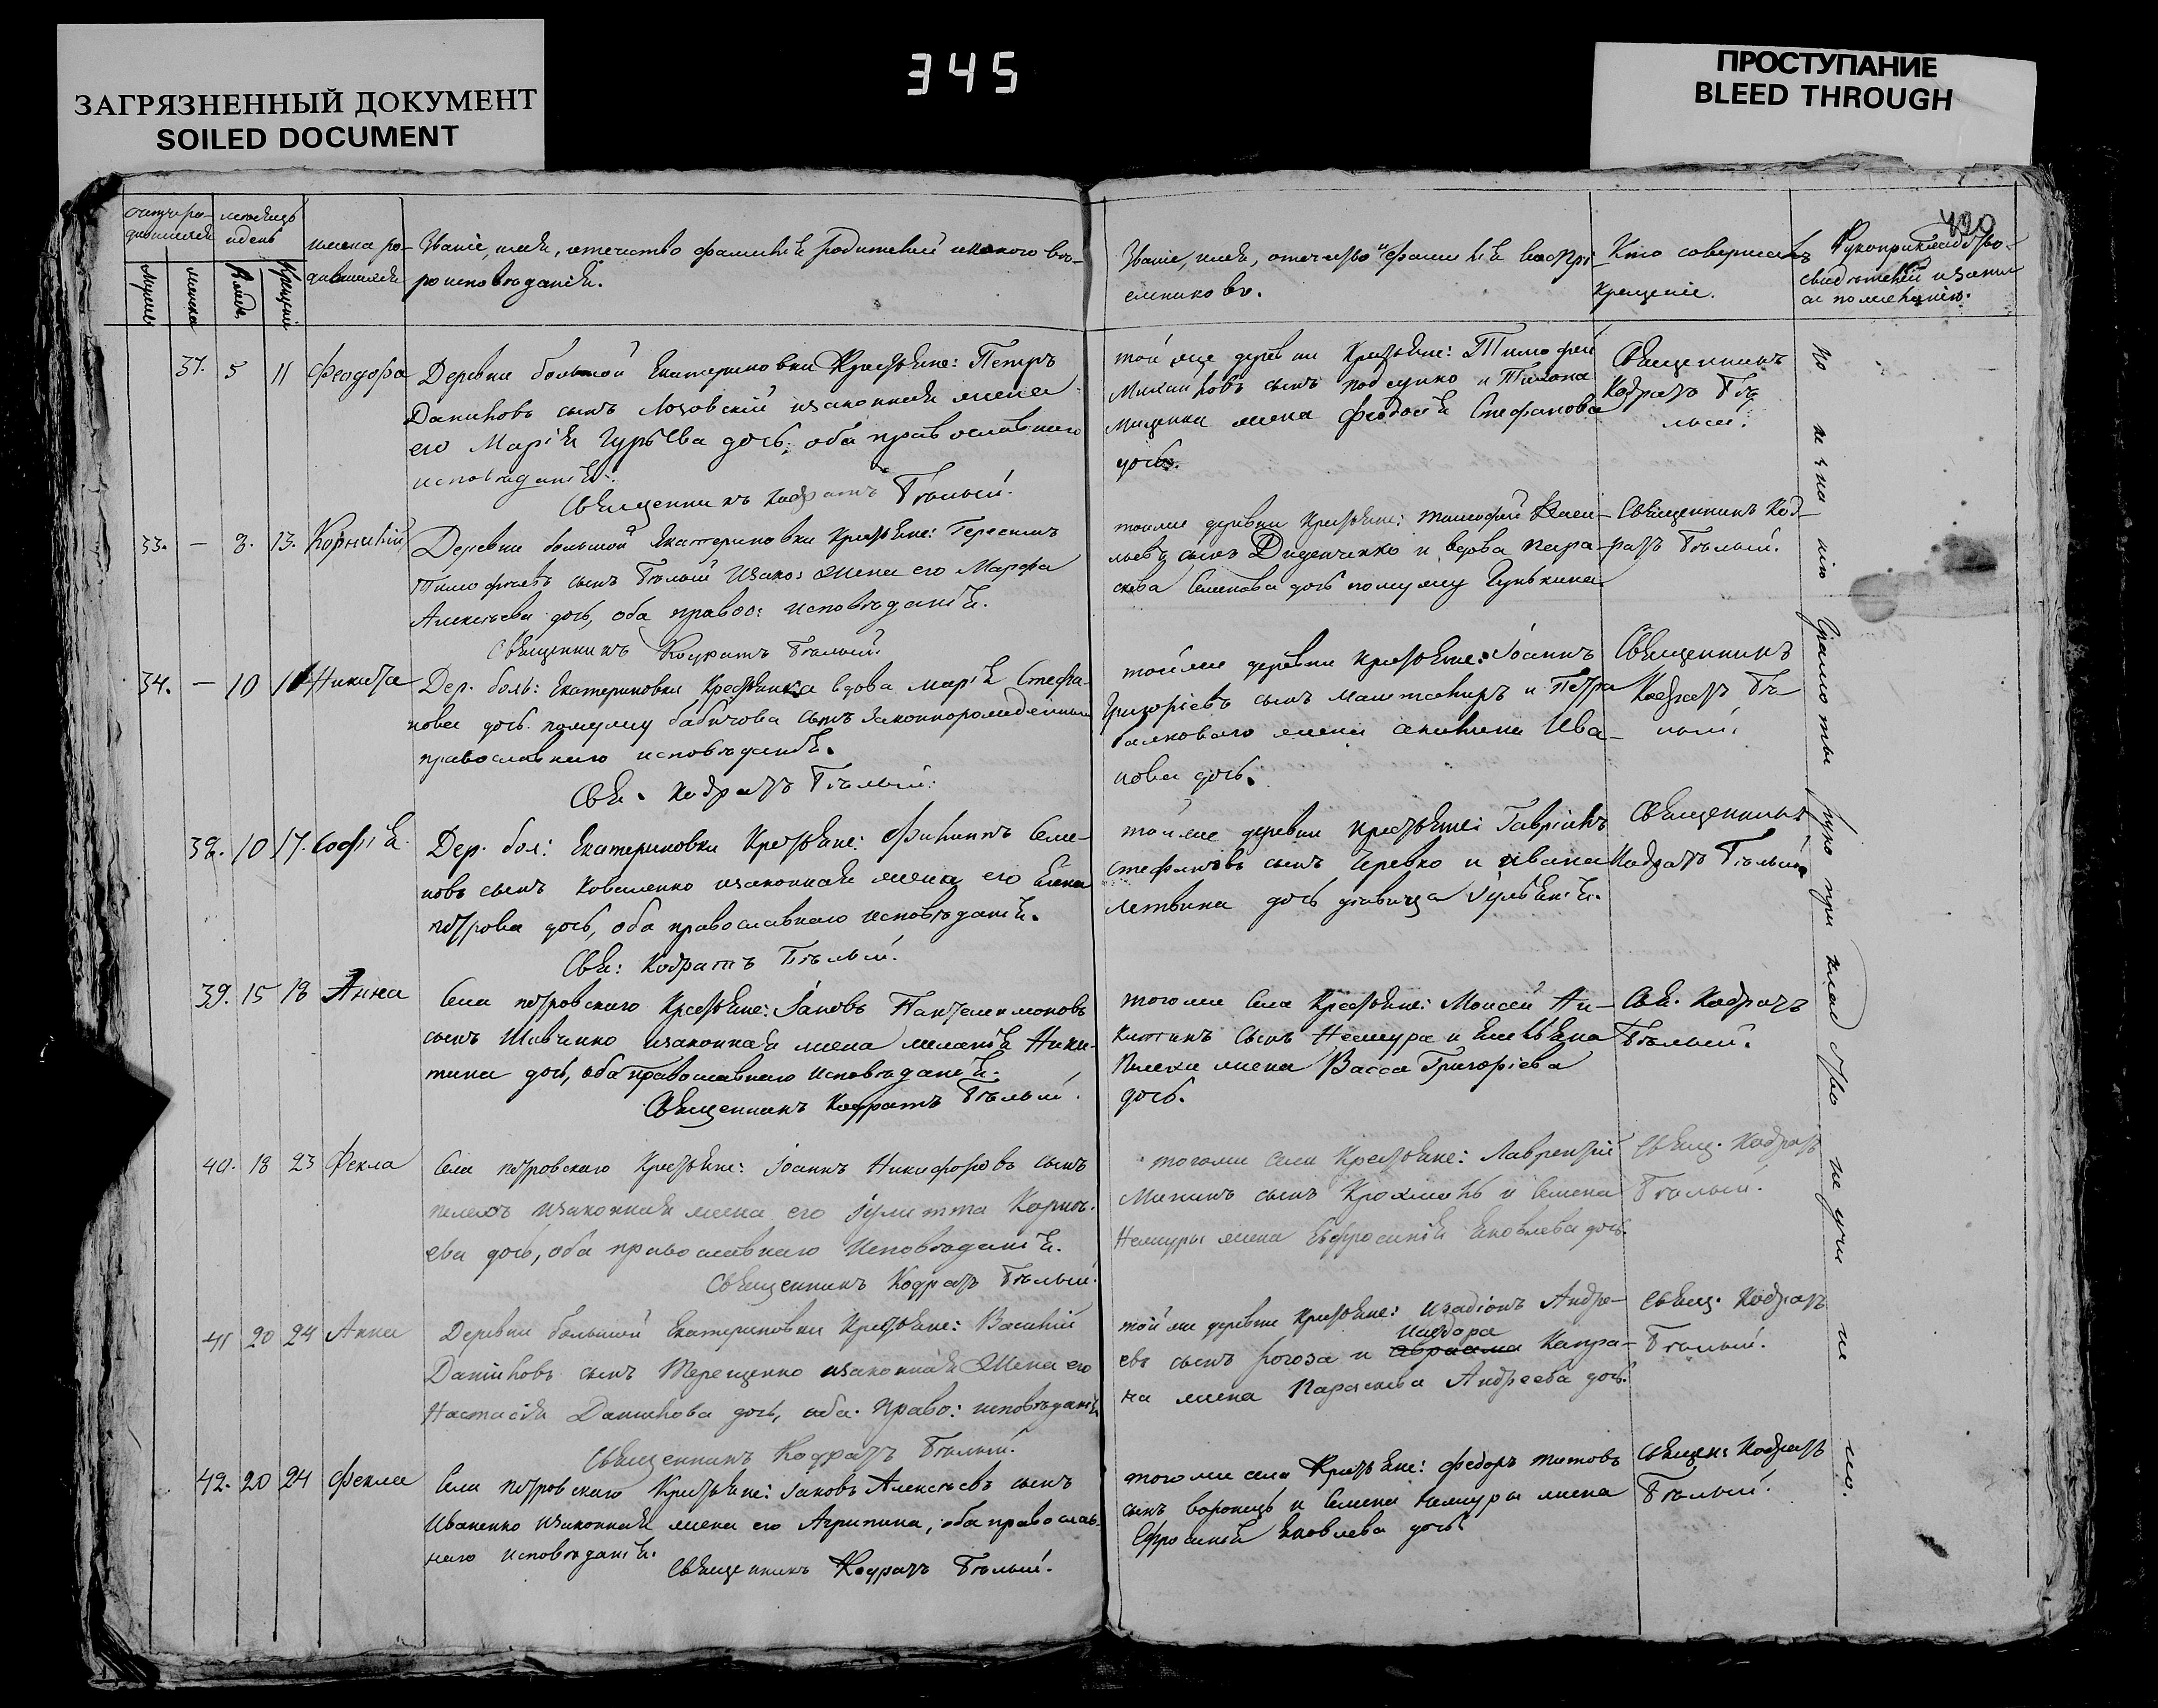 ЗАГРЯЗНЕННЫЙ ДОКУМЕНТ
SOILED DOCUMENT
345
ПРОСТУПАНИЕ
BLEED THROUGH
420
имена ро-
дившихся
Званіе, имя, отечество фамилія родителей и какого вѣ-
роисповѣданія.
Званіе, имя, отечество и фамилія воспрі-
емниковъ.
Кто совершалъ
крещеніе.
37. 5 11 Феодора
Деревни большой Екатериновки Крестьяне: Петръ
Даниловъ сынъ Лозовскій и законная жена
его Марія Гурьева дочь, оба православнаго
исповѣданія.
Священникъ Кодратъ Бѣлый.
той же деревни Крестьяне: Тимофей
Михайловъ сынъ и
жена Феодосія Стефанова
дочь.
Священникъ
Кодратъ Бѣ
лый.
33. — 8. 13. Корнилій
Деревни большой Екатериновки Крестьяне: Герасимъ
Тимофѣевъ сынъ Бѣлый и зако: жена его Марфа
Алексѣева дочь, оба правос: исповѣданія.
Священникъ Кодратъ Бѣлый.
той же деревни Крестьяне: Тимофей Васи-
льевъ сынъ Диденченко и вдова Пара-
скева Семенова дочь по мужу Гунькина
Священникъ Код-
ратъ Бѣлый.
34. — 10 Никита
Дер. боль: Екатериновки Крестьянка вдова Марія Стефа-
нова дочь по мужу Бабичова сынъ законнорожденный
православнаго исповѣданія.
Свя. Кодратъ Бѣлый.
той же деревни крестьяне: Іоаннъ
Григоріевъ сынъ и Петра
жена Ива-
нова дочь.
Священникъ
Кодратъ Бѣ-
лый.
38. 10 17. Софія
Дер. бол: Екатериновки Крестьяне: Филиппъ Семе-
новъ сынъ Коваленко и законная жена его Елена
Петрова дочь, оба православнаго исповѣданія.
Свя: Кодратъ Бѣлый.
той же деревни крестьяне: Гавріилъ
Стефановъ сынъ Черевко и Ивана
дочь дѣвица Іуліанія.
Священникъ
Кодратъ Бѣлый
39. 15 18 Анна
Села Петровскаго Крестьяне: Іаковъ Пантелемоновъ
сынъ Шевченко и законная жена Меланія Ники-
тина дочь, оба православнаго исповѣданія.
Священникъ Кодратъ Бѣлый.
того же села Крестьяне: Моисей Ни-
китинъ сынъ Немура и Емельяна
жена Васса Григоріева
дочь.
Свя. Кодратъ
Бѣлый.
40. 18 23 Фекла
Села Петровскаго Крестьяне: Іоаннъ Никифоровъ сынъ
и законная жена его Іулитта Корнѣ-
ева дочь, оба православнаго исповѣданія.
Священникъ Кодратъ Бѣлый.
того же села Крестьяне: Лаврентій
Мининъ сынъ и Семена
Немуры жена Евфросинія Яковлева дочь.
Свящ. Кодратъ
Бѣлый.
41 20 24 Анна
Деревни большой Екатериновки Крестьяне: Василій
Даніиловъ сынъ Терещенко и законная жена его
Настасія Данилова дочь, оба право: исповѣданія
Священникъ Кодратъ Бѣлый.
той же деревни Крестьяне: Андре-
евъ сынъ Рогоза и Авраама Исидора Капра-
на жена Параскева Андреева дочь.
Свящ. Кодратъ
Бѣлый.
42. 20 24 Фекла
Села Петровскаго Крестьяне: Іаковъ Алексѣевъ сынъ
Иваненко и законная жена его Агрипина, оба православ-
наго исповѣданія.
Священникъ Кодратъ Бѣлый.
того же села Крестьяне: Федоръ Титовъ
сынъ Воронецъ и Семена Немуры жена
Ефросинія Яковлева дочь
Священ: Кодратъ
Бѣлый.